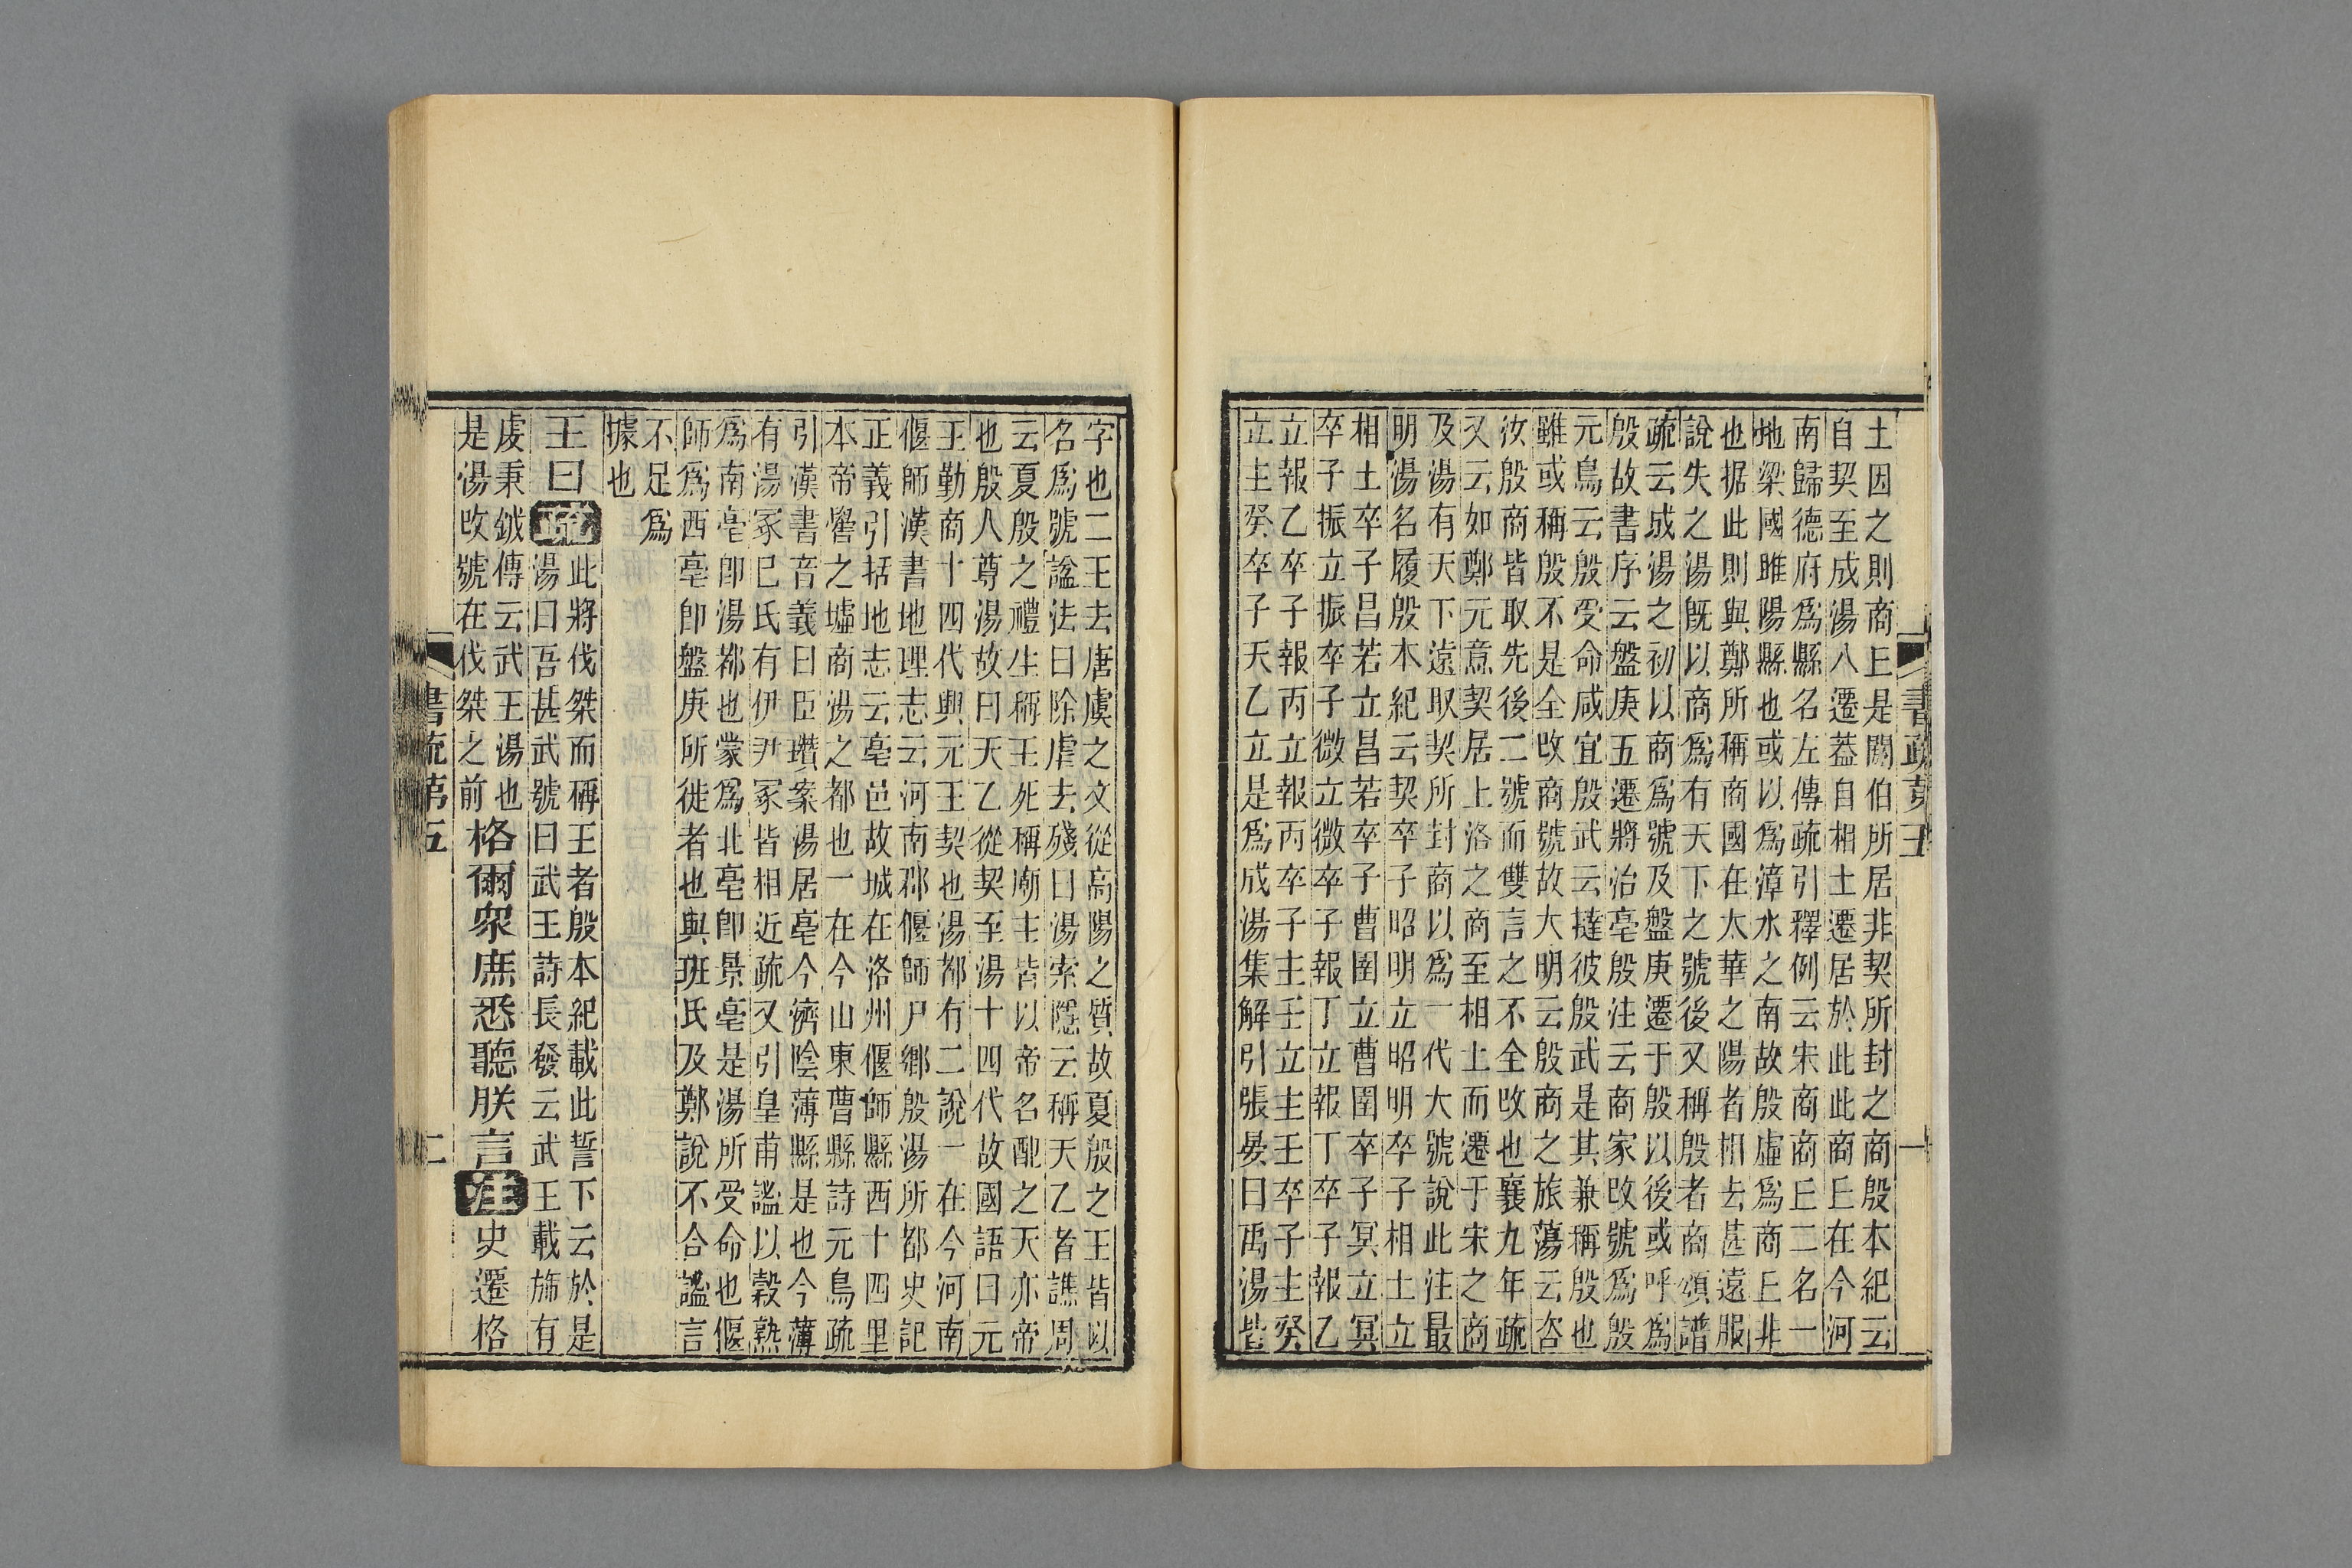 土因之則商𠀉是閼伯所居非契所封之商殷本紀云
自契至成湯八遷蓋自相土遷居於此此商𠀉在今河
南歸德府爲縣名左傳疏引釋例云宋商商𠀉二名一
地梁國睢陽縣也或以爲漳水之南故殷虛爲商𠀉非
也据此則與鄭所稱商國在太華之陽者相去甚遠服
說失之湯旣以商爲有天下之號後又稱殷者商頌譜
疏云成湯之初以商爲號及盤庚遷于殷以後或呼爲
殷故書序云盤庚五遷將治亳殷注云商家改號爲殷
元鳥云殷受命咸宜殷武云撻彼殷武是其兼稱殷也
雖或稱殷不是全改商號故大明云殷商之旅蕩云咨
汝殷商皆取先後二號而雙言之不全改也襄九年疏
又云如鄭元意契居上洛之商至相土而遷于宋之商
及湯有天下遠取契所封商以爲一代大號說此注最
明湯名履殷本紀云契卒子昭明立昭明卒子相土立
相土卒子昌若立昌若卒子曹圉立曹圉卒子冥立冥
卒子振立振卒子微立微卒子報丁立報丁卒子報乙
立報乙卒子報丙立報丙卒子主壬立主壬卒子主癸
立主癸卒子天乙立是爲成湯集解引張晏曰禹湯皆
書疏第五
一
字也二王去唐虞之文從高陽之質故夏殷之王皆以
名爲號諡法曰除虐去殘曰湯索隱云稱天乙者譙周
云夏殷之禮生稱王死稱廟主皆以帝名配之天亦帝
也殷人尊湯故曰天乙從契至湯十四代故國語曰元
王勤商十四代興元王契也湯都有二說一在今河南
偃師漢書地理志云河南郡偃師尸鄉殷湯所都史記
正義引括地志云亳邑故城在洛州偃師縣西十四里
本帝嚳之墟商湯之都也一在今山東曹縣詩元鳥疏
引漢書音義曰臣瓚案湯居亳今濟陰薄縣是也今薄
有湯冢巳氏有伊尹冢皆相近疏又引皇甫謐以穀熟
爲南亳卽湯都也蒙爲北亳卽景亳是湯所受命也偃
師爲西亳卽盤庚所徙者也與班氏及鄭說不合謐言
不足爲
據也
王曰疏此將伐桀而稱王者殷本紀載此誓下云於是
湯曰吾甚武號曰武王詩長發云武王載斾有
虔秉鉞傳云武王湯也
是湯改號在伐桀之前格爾眾庶悉聽朕言注史遷格
書疏第五
二